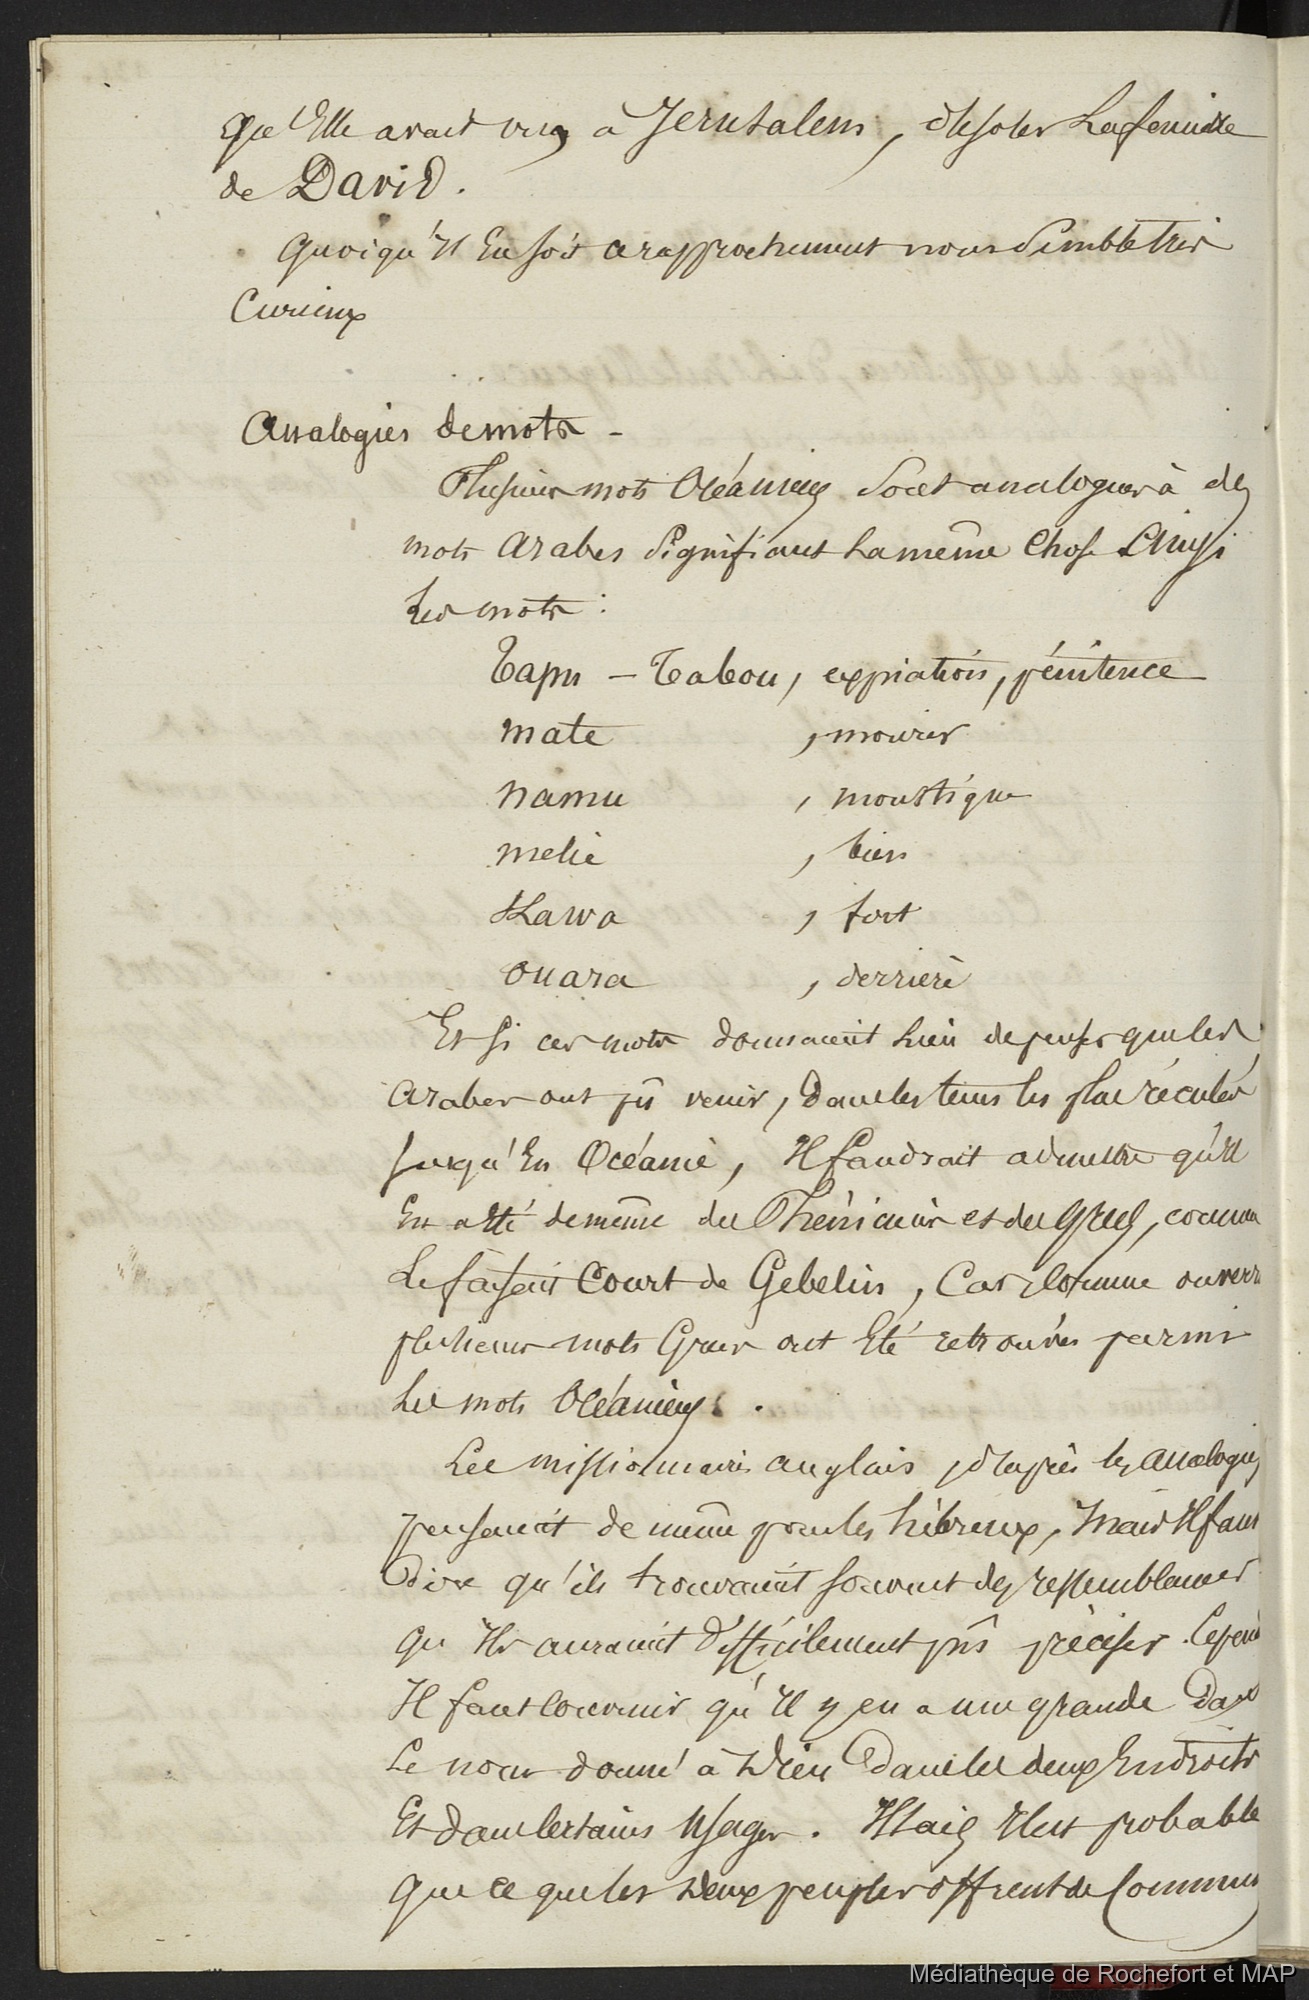 qu'Elle avait vus à Jérusalem, désoler la famille
de David.
Quoiqu'Il En soit ce rapprochement nous semble très
Curieux
Analogies de mots -
Plusieurs mots Océaniens sont analogues à des
mots arabes signifiant la même chose Ainsi
les mots :
Tapu - Tabou, expiation, pénitence
mate , mourir
namu , moustique
melie , bien
Kawa , fort
ouara , derrière
Et si ces mots donnaient lieu de penser que les
arabes ont pû venir, dans les tems les plus réculés
jusqu'En Océanie, Il faudrait admettre qu'Il
En a Eté de même des Phéniciens et des Grecs, comme
le faisait Court de Gebelin, Car comme on verra
plusieurs mots Grecs ont Eté retrouvés parmi
les mots Océaniens.
Les missionnaires anglais, d'après les analogies
pensaient de même pour les hébreux, mais Il faut
dire qu'ils trouvaient souvent des ressemblances
qu'Ils auraient difficilement pûs préciser. Cepend
Il faut convenir qu'Il y en a une grande dans
le nom donné à Dieu dans les deux Endroits
Et dans certains Usages. Mais Il est probable
que ce que les deux peuples offrent de Commun
Médiathèque de Rochefort et MAP